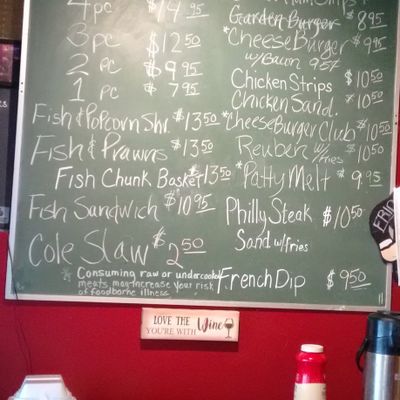 4 pc $14.95
3 pc $12.50
2 pc $9.95
1 pc $7.95
Fish & Popcorn Shr. $13.50
Fish & Prawns $13.50
Fish Chunk Basket $13.50
Fish Sandwich $10.95
Cole Slaw $2.50
* Consuming raw or undercooked
meats may increase your risk
of foodborne illness
Garden Burger $8.95
*CheeseBurger $9.95
w/Bacon 95¢
Chicken Strips $10.50
Chicken Sand. $10.50
*CheeseBurger Club $10.50
Reuben w/fries $10.50
*Patty Melt $9.95
Philly Steak $10.50
Sand w/fries
French Dip $9.50
LOVE THE Wine
YOU'RE WITH